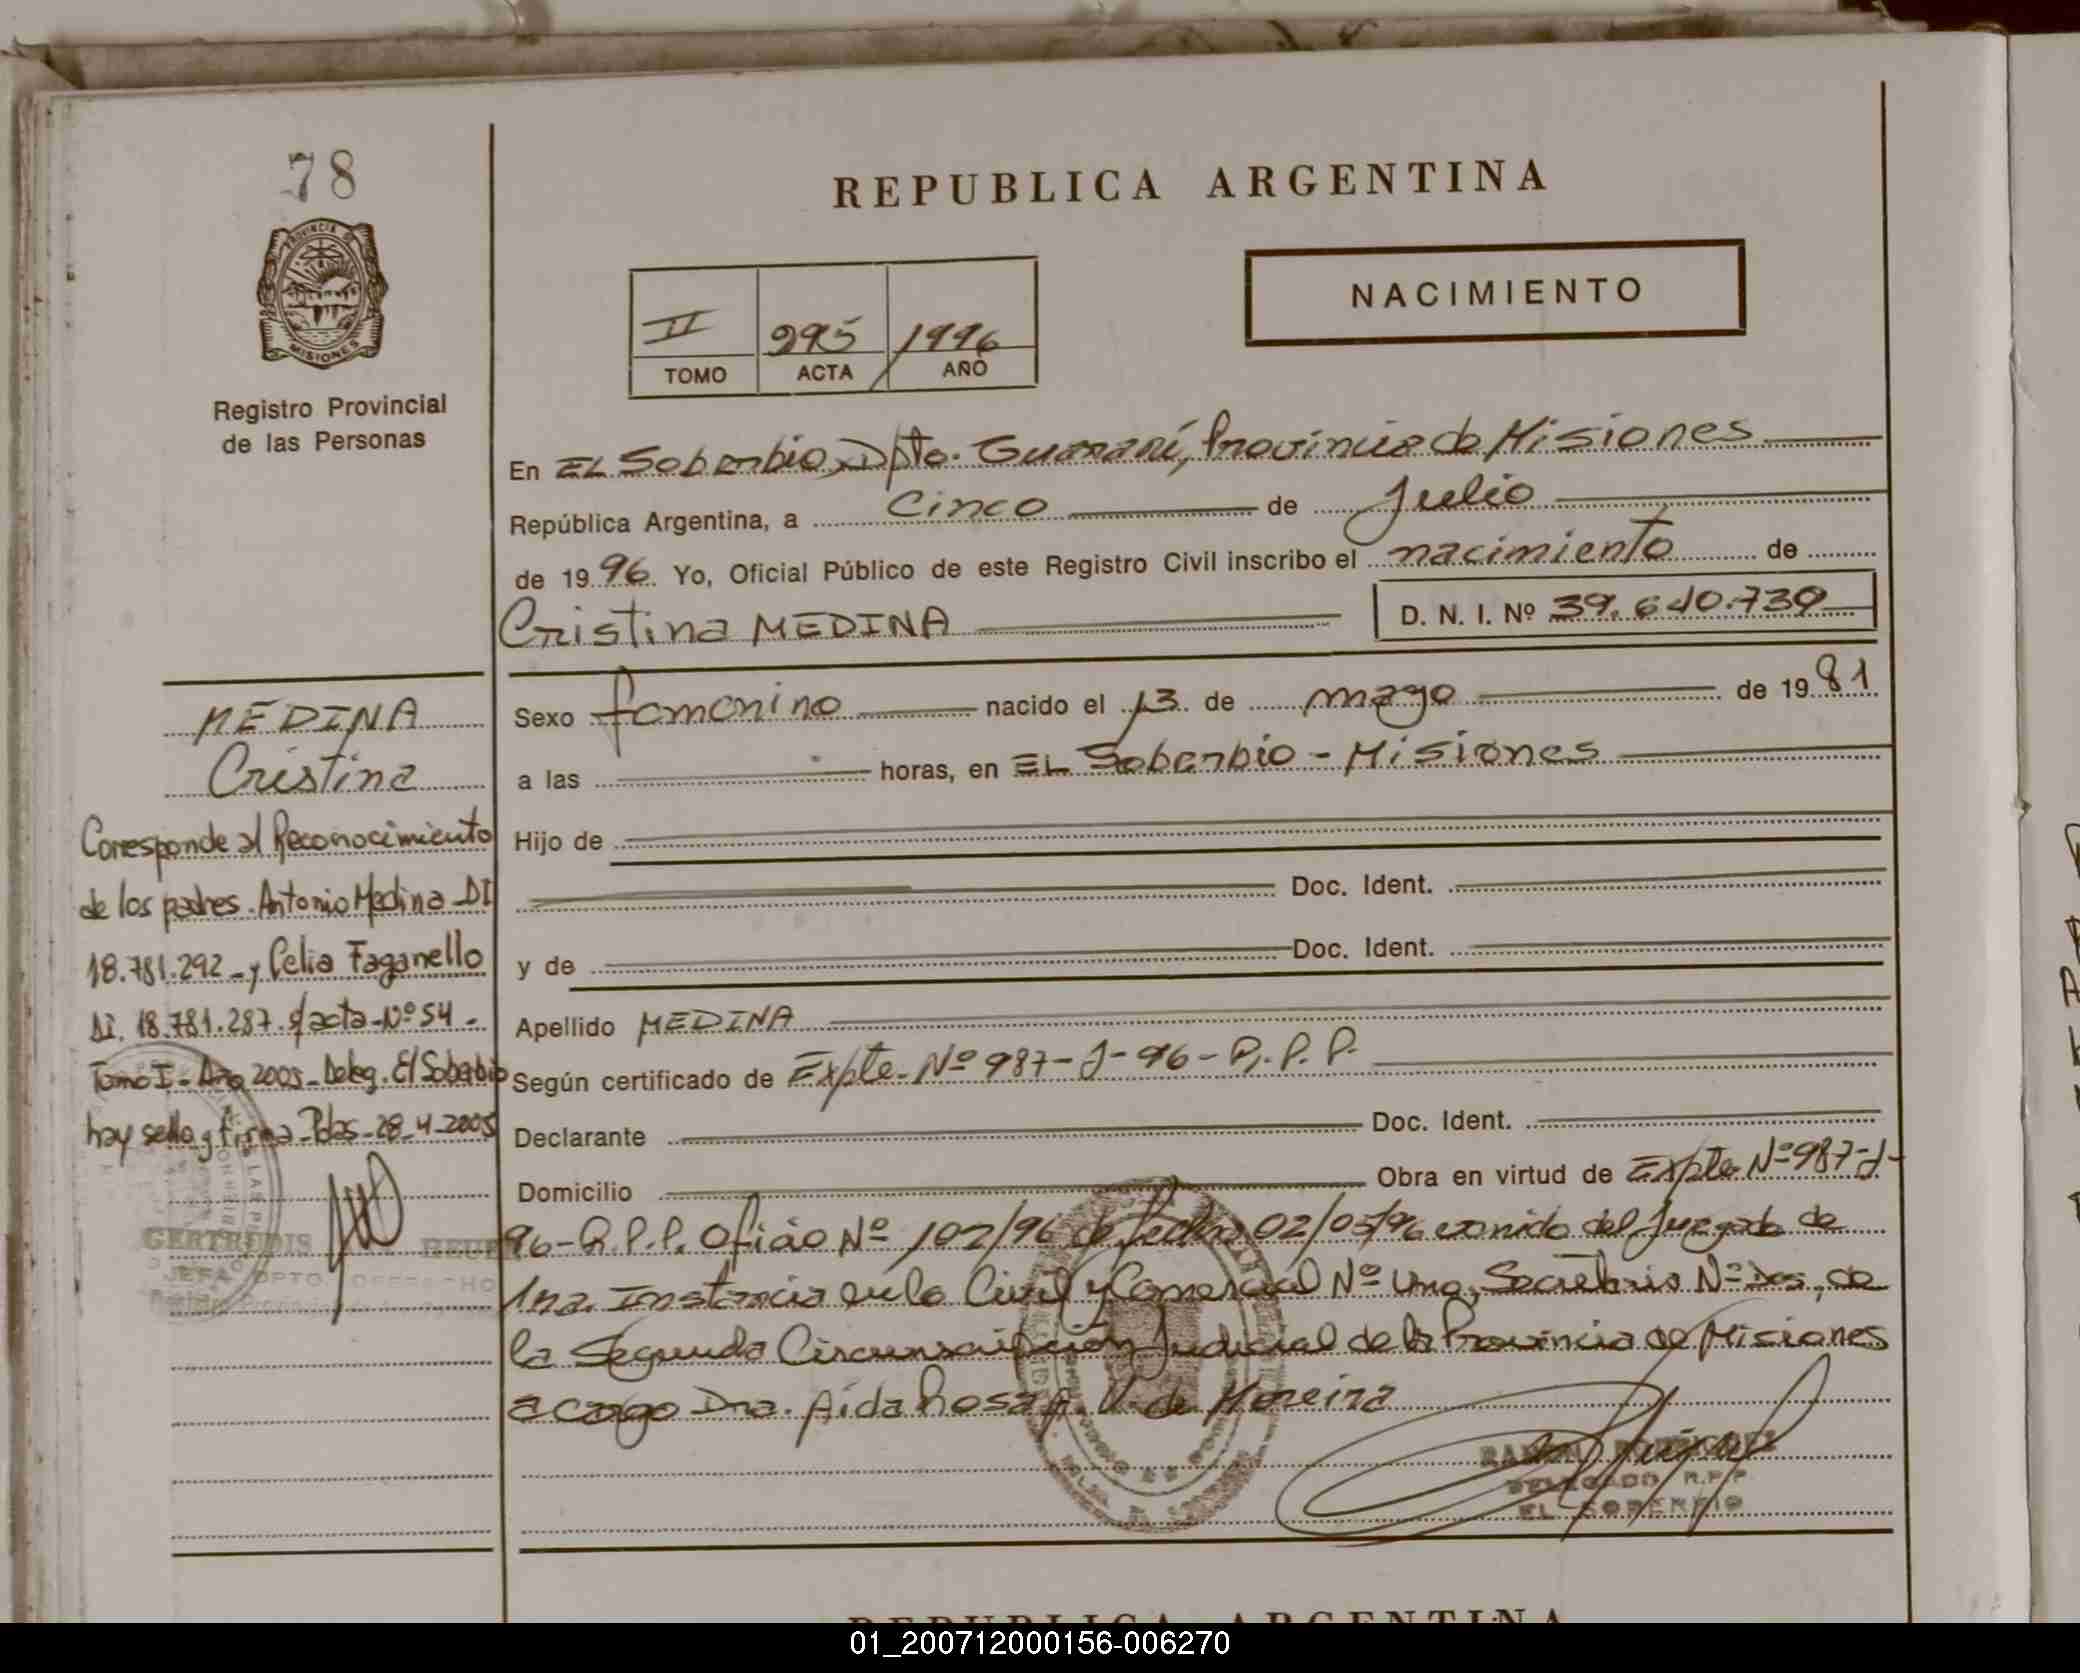 78
PROVINCIA DE
MISIONES
Registro Provincial
de las Personas
REPUBLICA ARGENTINA
NACIMIENTO
II 295 1996
TOMO ACTA AÑO
En EL Soberbio, Dpto. Guaraní, Provincia de Misiones
República Argentina, a Cinco de Julio
de 1996 Yo, Oficial Público de este Registro Civil inscribo el nacimiento de
Cristina MEDINA D. N. I. Nº 39.640.739
Sexo femenino nacido el 13 de mayo de 1981
a las horas, en EL Soberbio - Misiones
Hijo de
Doc. Ident.
y de Doc. Ident.
Apellido MEDINA
Según certificado de Expte. Nº 987-J-96-R.P.P.
Declarante Doc. Ident.
Domicilio Obra en virtud de Expte Nº 987-J-
96-R.P.P. Oficio Nº 102/96 de fecha 02/05/96 venido del Juzgado de
1ra. Instancia en lo Civil y Comercial Nº Uno, Secretaria Nº Dos, de
la Segunda Circunscripción Judicial de la Provincia de Misiones
a cargo Dra. Aída Rosa de Moreira
DELEGADO R.P.P
EL SOBERBIO
MEDINA
Cristina
Corresponde al Reconocimiento
de los padres. Antonio Medina DI
18.781.292 - y Celia Faganello
DI. 18.781.287. s/acta - Nº 54 -
Tomo I - Año 2005 - Deleg. El Soberbio
hay sello y firma - Pdas - 28-4-2005
GERTRUDIS
JEFA DPTO.
REPUBLICA ARGENTINA
01_200712000156-006270